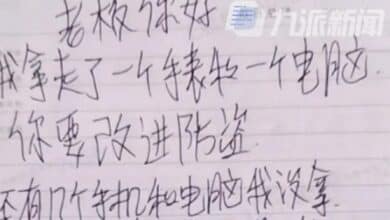 九派新闻
老板你好
我拿走了一个手表和一个电脑
你要改进防盗
还有几个手机和电脑我没拿